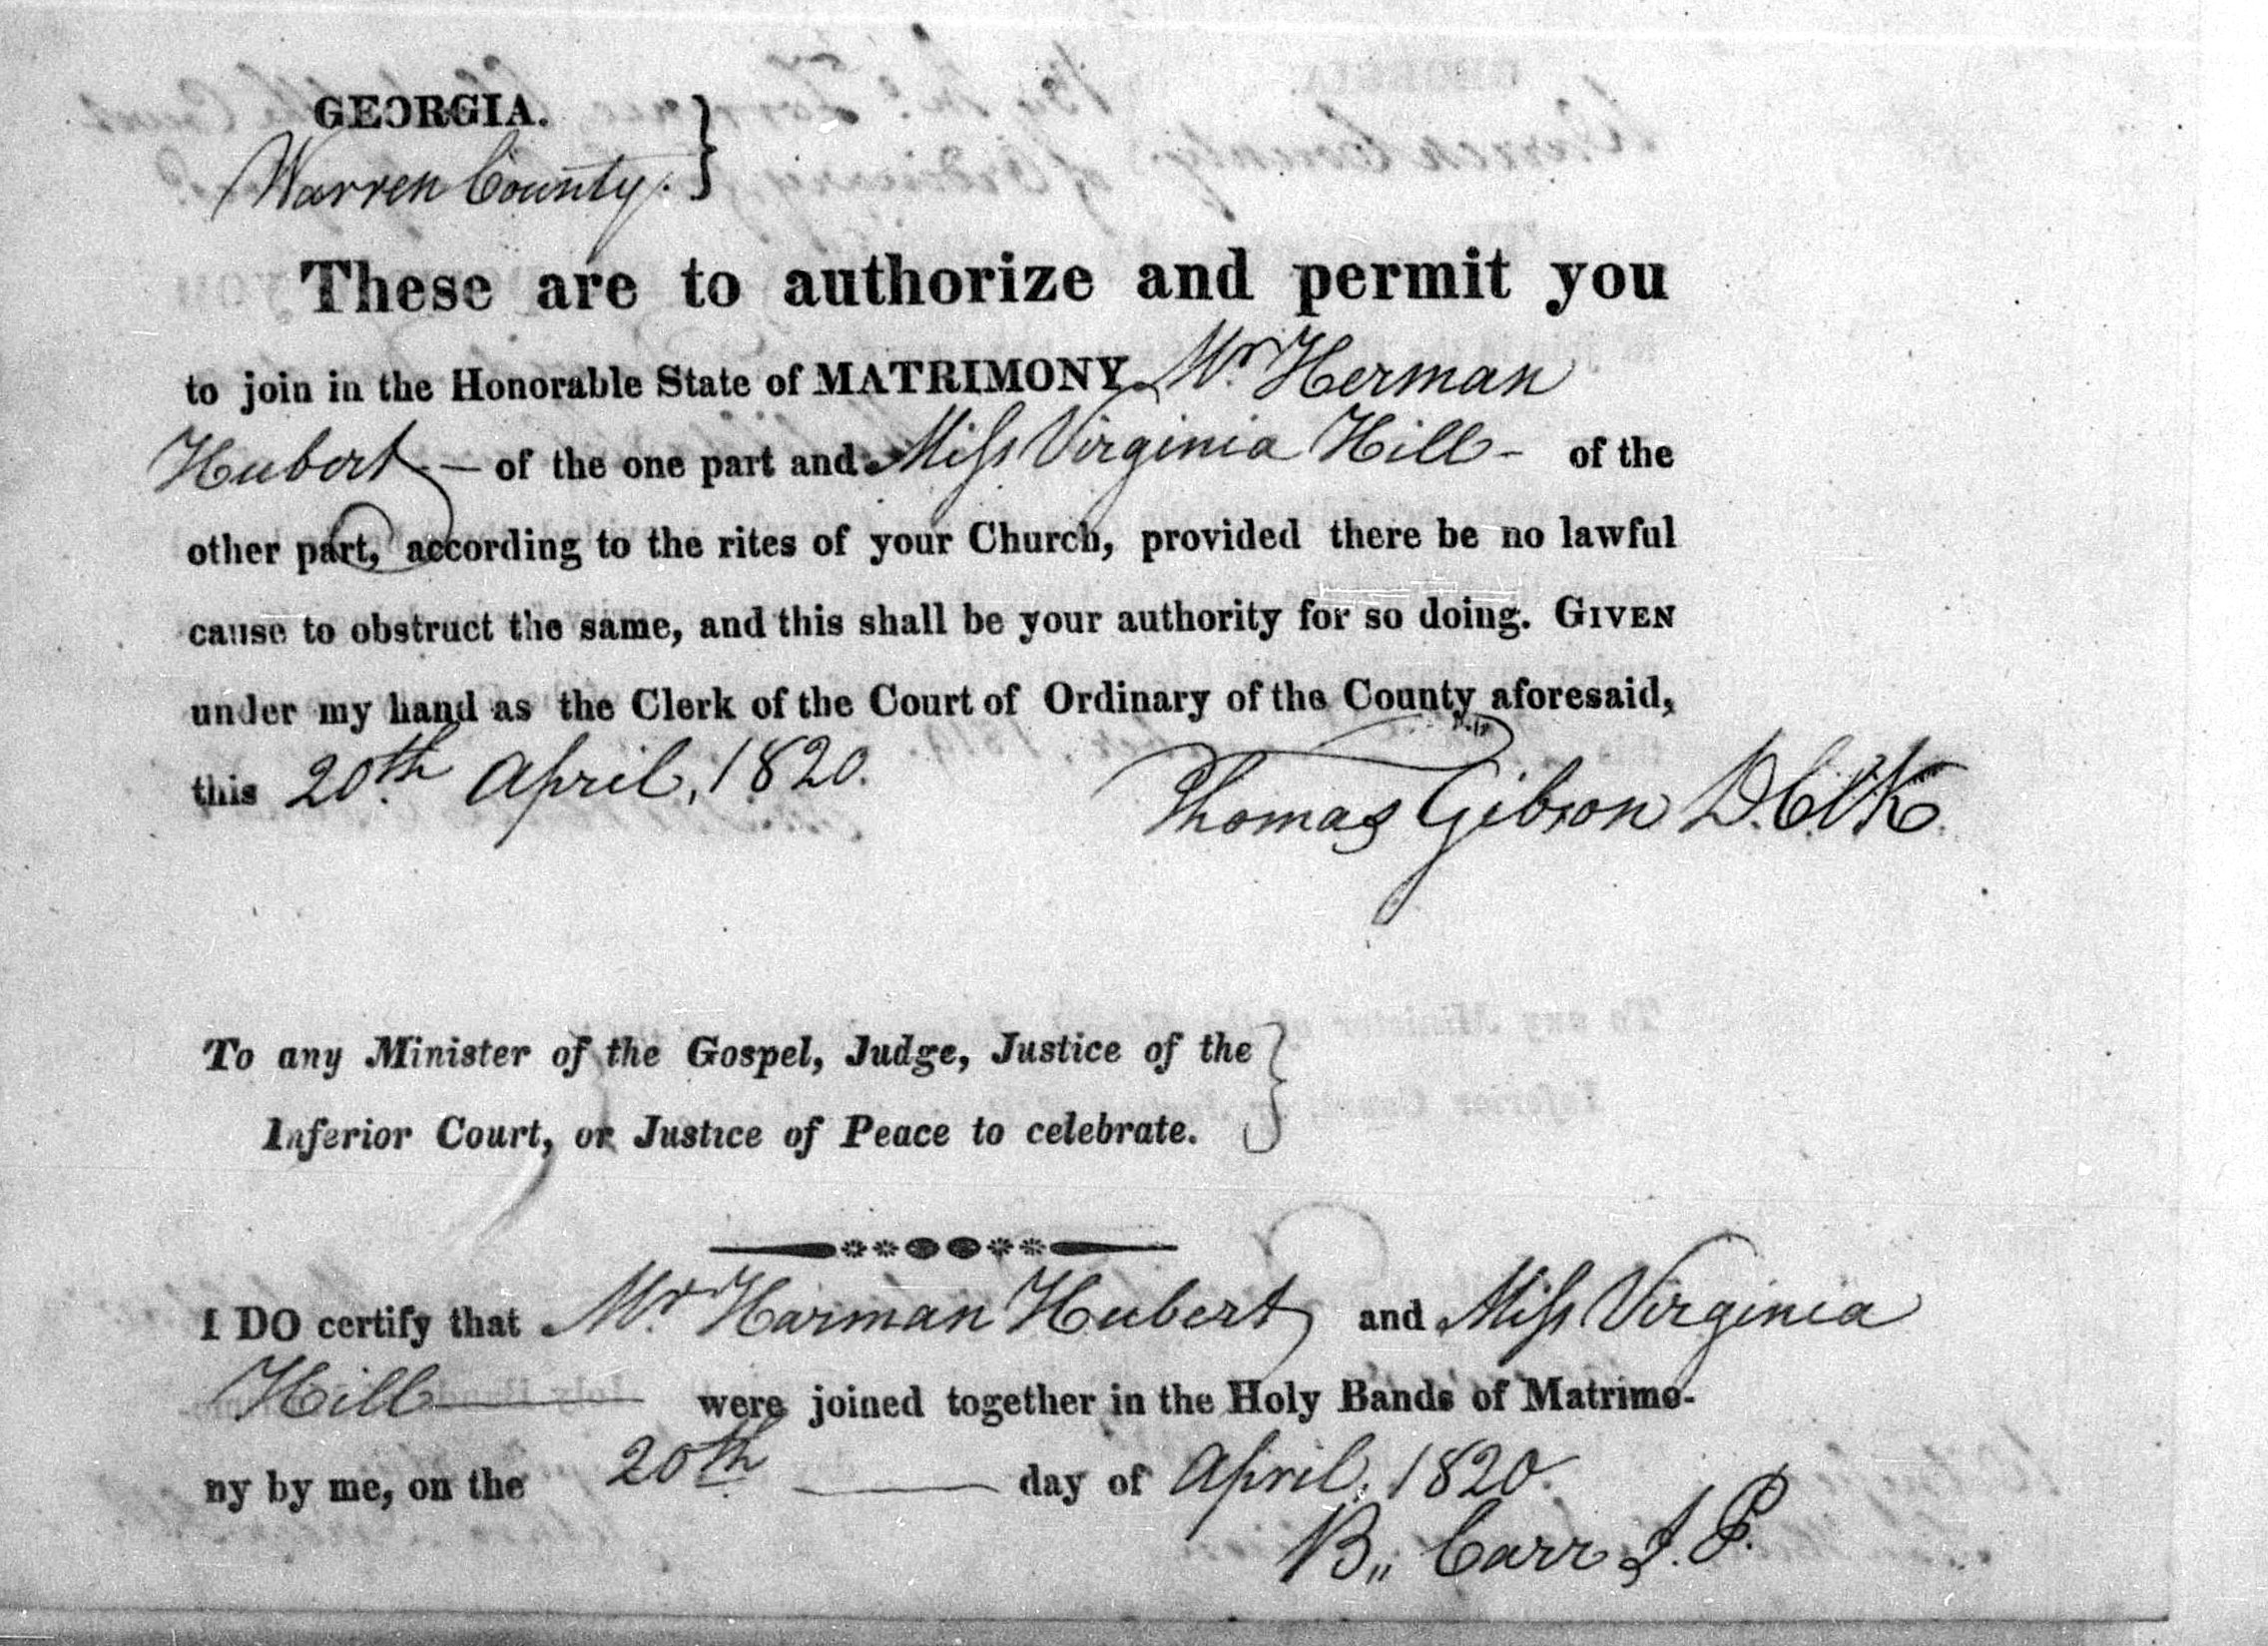 GEORGIA.
Warren County. }
These are to authorize and permit you
to join in the Honorable State of MATRIMONY Mr. Herman
Hubert — of the one part and Miss Virginia Hill - of the
other part, according to the rites of your Church, provided there be no lawful
cause to obstruct the same, and this shall be your authority for so doing. GIVEN
under my hand as the Clerk of the Court of Ordinary of the County aforesaid,
this 20th April, 1820. Thomas Gibson D. Clk.
To any Minister of the Gospel, Judge, Justice of the }
Inferior Court, or Justice of Peace to celebrate.
I DO certify that Mr. Harman Hubert and Miss Virginia
Hill — were joined together in the Holy Bands of Matrimo-
ny by me, on the 20th — day of April, 1820.
B,, Carr J. P.